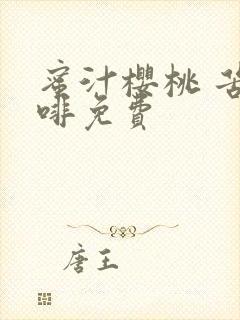 蜜汁樱桃 苦
啡免費
唐王